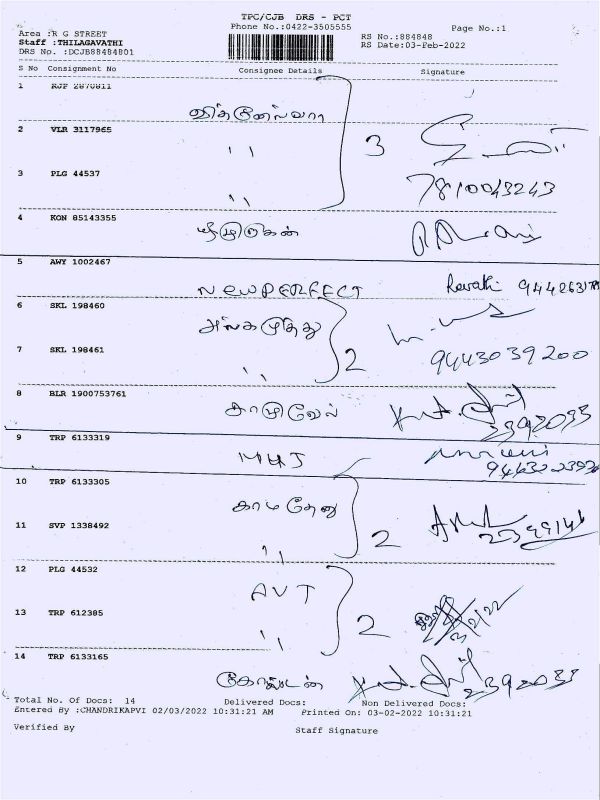 TPC/CJB DRS - PCT
Phone No.:0422-3505555 Page No.:1
Area :R G STREET RS No.:884848
Staff :THILAGAVATHI RS Date:03-Feb-2022
DRS No. :DCJB88484801
S No Consignment No Consignee Details Signature
1 RJP 2870811
விக்னேஸ்வரா
2 VLR 3117965
,, 3
3 PLG 44537 7810043243
,,
4 KON 85143355
5 AWY 1002467
NEWPERFECT Revathi
6 SKL 198460
7 SKL 198461
,, 2 9443039200
8 BLR 1900753761
2392033
9 TRP 6133319
MHJ
10 TRP 6133305
காமதேனு
11 SVP 1338492
,, 2
12 PLG 44532
AVT
13 TRP 612385
,, 2 3/2/22
14 TRP 6133165
2392033
Total No. Of Docs: 14 Delivered Docs: Non Delivered Docs:
Entered By :CHANDRIKAPVI 02/03/2022 10:31:21 AM Printed On: 03-02-2022 10:31:21
Verified By Staff Signature